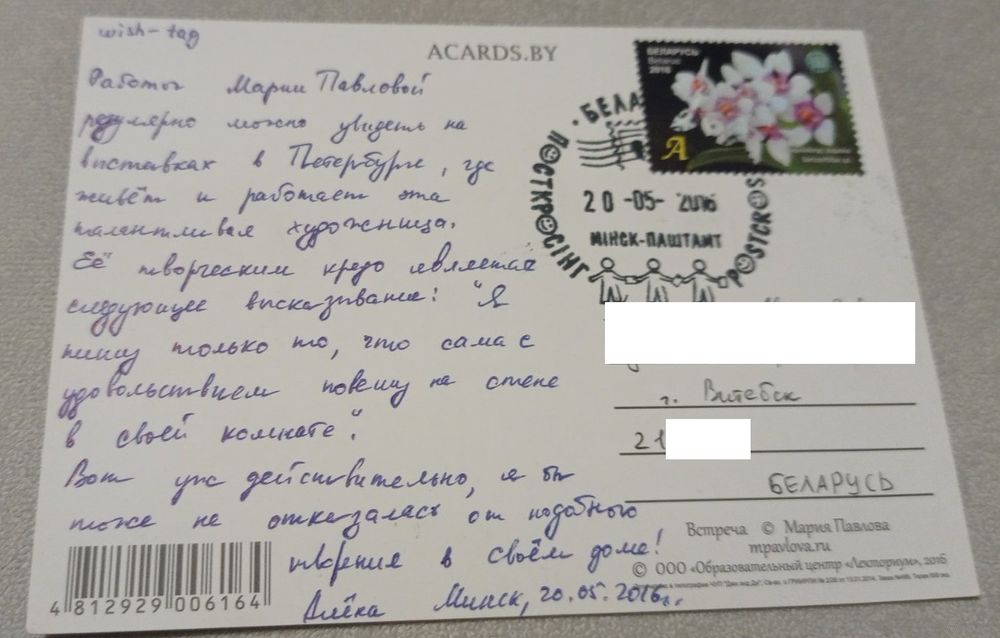 wish-tag
Работы Марии Павловой
регулярно можно увидеть на
выставках в Петербурге, где
живёт и работает эта
талантливая художница.
Её творческим кредо является
следующее высказывание: "Я
пишу только то, что сама с
удовольствием повешу на стене
в своей комнате".
Вот уж действительно, я бы
тоже не отказалась от подобного
творения в своём доме!
Алёка Минск, 20.05.2016г.
ACARDS.BY
БЕЛАРУСЬ
Belarus
2016
A
• БЕЛА
ПОСТКРОСІНГ
20-05-2016
МІНСК-ПАШТАМТ
POSTCROS
г. Витебск
21
БЕЛАРУСЬ
Встреча © Мария Павлова
mpavlova.ru
© ООО «Образовательный центр «Лекториум», 2016
4 812929 006164